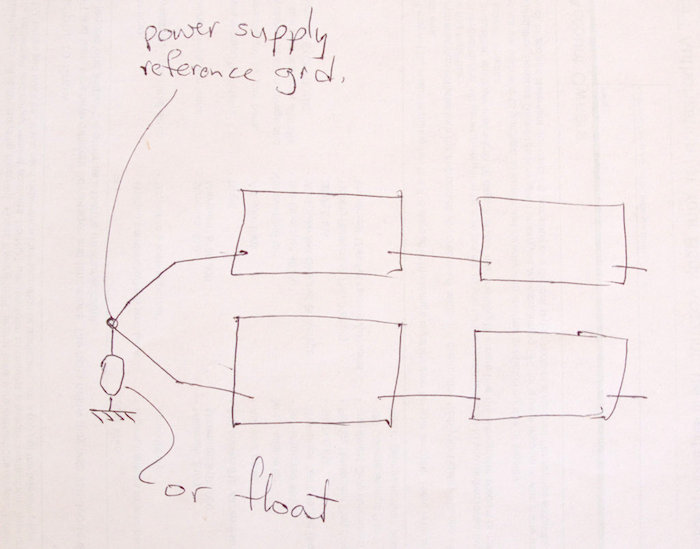 power supply
reference grd.
or float